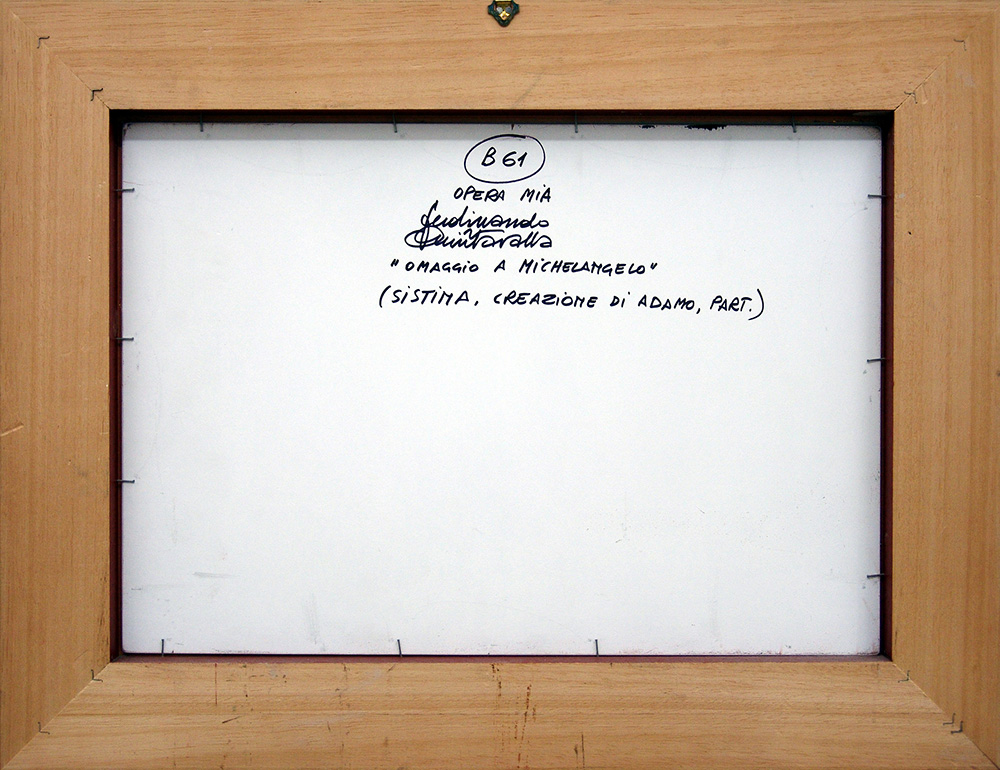 B 61
OPERA MIA
Ferdinando
Quintavalla
"OMAGGIO A MICHELANGELO"
(SISTINA, CREAZIONE DI ADAMO, PART.)